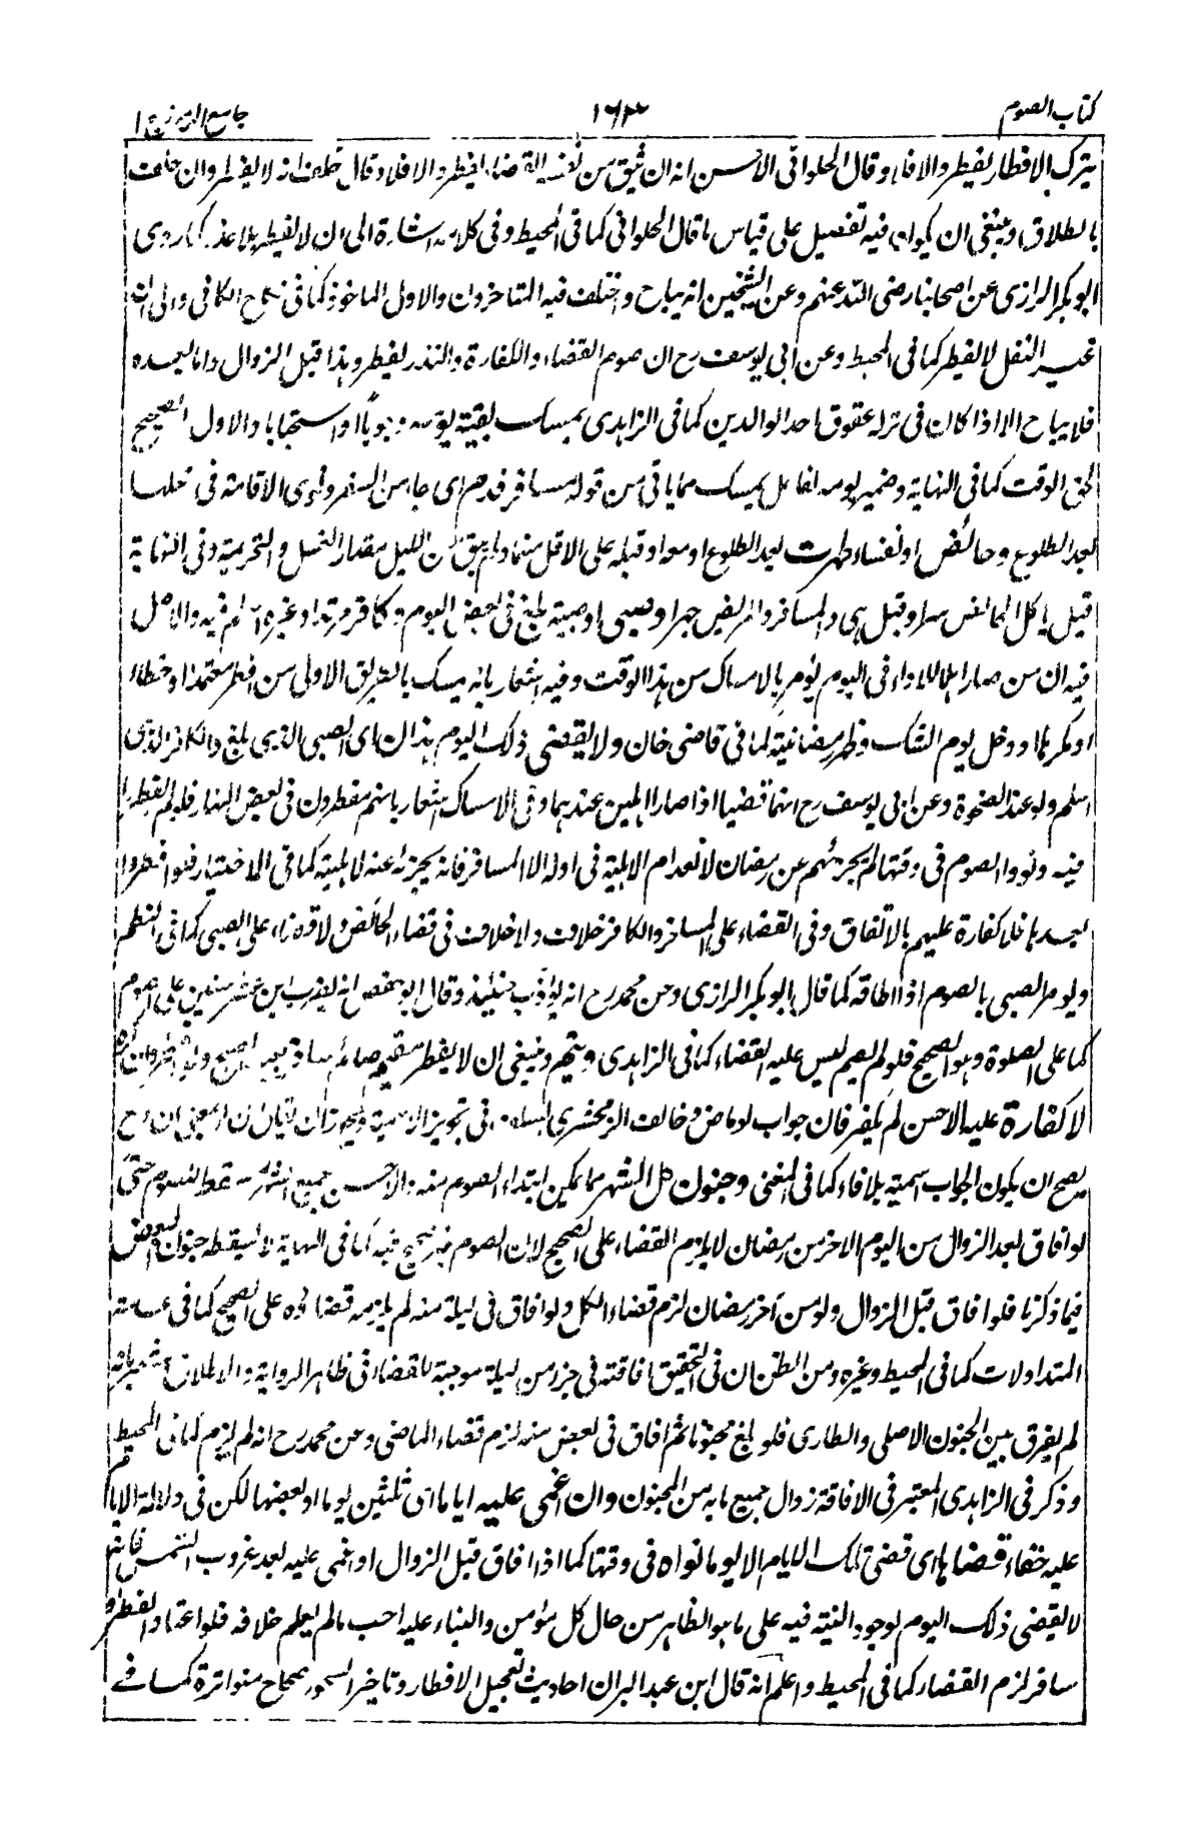 كتاب الصوم ١٦٣ جامع الرموز ج ١
بترك الافطار يفطر والا فلا وقال الحلوانى الاحسن انه ان يثق من نفسه القضاء يفطر والا فلا وقال خلف انه لا يفطر وان حلف
بالطلاق وينبغى ان يكون فيه تفصيل على قياس ما قال الحلوانى كما فى المحيط وفى كلامه اشارة الى ان لا يفطر بلا عذر كما روى
ابو بكر الرازى عن اصحابنا رضى الله عنهم وعن الشيخين انه يباح واختلف فيه المتاخرون والاول الماخوذ كما فى نكاح الكافى والى ان
غير النفل لا يفطر كما فى المحيط وعن ابى يوسف رح ان صوم القضاء والكفارة والنذر يفطر وهذا قبل الزوال واما بعده
فلا يباح الا اذا كان فى تركه عقوق احد الوالدين كما فى الزاهدى يمسك بقية يومه وجوبا او استحبابا والاول الصحيح
لحق الوقت كما فى النهاية وضمير يومه لفاعل يمسك مما ياتى من قوله مسافر قدم اى جاء من السفر ونوى الاقامة فى محلها
بعد الطلوع وحائض او نفساء طهرت بعد الطلوع او معه او قبله على الاقل منهما ولم يبق من الليل مقدار الغسل والتحريمة وفى النهاية
قيل ياكل الحائض سرا وقيل هى والمسافر والمريض جهرا وصبى او صبية بلغ فى بعض اليوم وكافر مرتد او غيره اسلم فيه والاصل
فيه ان من صار اهلا للاداء فى اليوم يؤمر بالامساك من هذا الوقت وفيه اشعار بانه يمسك بالطريق الاولى من افطر متعمدا او خطاء
او مكرها او دخل يوم الشك وظهر رمضانيته كما فى قاضى خان ولا يقضى ذلك اليوم هذان اى الصبى الذى بلغ والكافر الذى
اسلم ولو عند الضحوة وعن ابى يوسف رح انهما قضيا اذا صارا اهلين عندهما وفى الامساك اشعار بانهم مفطرون فى بعض النهار فلو لم يفطروا
فيه ونووا الصوم فى وقتها لم يجزئهم عن رمضان لانعدام الاهلية فى اوله الا المسافر فانه يجزئه عنه لاهليته كما فى الاختيار فلو افطروا
بعدها فلا كفارة عليهم بالاتفاق وفى القضاء على المسافر والكافر خلاف ولا خلاف فى قضاء الحائض ولا قضاء على الصبى كما فى النظم
ويؤمر الصبى بالصوم اذا اطاقه كما قال ابو بكر الرازى وعن محمد رح انه يؤدب حينئذ وقال ابو حفص انه يضرب ابن عشر سنين على الصوم
كما على الصلوة وهو الصحيح فلو لم يصم ليس عليه القضاء كما فى الزاهدى ويتم وينبغى ان لا يفطر مقيم صائم سافر بعد الصبح ولو افطر
لا كفارة عليه الاحسن لم يكفر فان جواب لو ماض وخالف الزمخشرى فى تجويز الاسمية
يصح ان يكون الجواب اسمية بلا فاء كما فى المغنى وجنون كل الشهر مما يمكن ابتداء الصوم منه والاحسن جميع الشهر مسقط للصوم حتى
لو افاق بعد الزوال من اليوم الاخر من رمضان لا يلزم القضاء على الصحيح لان الصوم غير صحيح فيه كما فى النهاية لا يسقطه جنون البعض
فيما ذكرنا فلو افاق قبل الزوال ولو من آخر رمضان لزم قضاء الكل ولو افاق فى ليلة منه لم يلزمه قضاؤه على الصحيح كما فى عامة
المتداولات كما فى المحيط وغيره ومن الظن ان فى التحقيق افاقته فى جزء من ليلة موجبة للقضاء فى ظاهر الرواية والاطلاق مشير بانه
لم يفرق بين الجنون الاصلى والطارى فلو بلغ مجنونا ثم افاق فى بعض منه لزم قضاء الماضى وعن محمد رح انه لم يلزم كما فى المحيط
وذكر فى الزاهدى المعتبر فى الافاقة زوال جميع ما به من الجنون وان اغمى عليه اياما اى ثلثين يوما او بعضها لكن فى دلالة الايام
عليه خفاء قضاها اى قضى تلك الايام الا يوما نواه فى وقتها كما اذا افاق قبل الزوال او اغمى عليه بعد غروب الشمس فانه
لا يقضى ذلك اليوم لوجود النية فيه على ما هو الظاهر من حال كل مؤمن والبناء عليه احب ما لم يعلم خلافه فلو اعتاد الفطر او
سافر لزم القضاء كما فى المحيط واعلم انه قال ابن عبد البر ان احاديث تعجيل الافطار وتاخير السحور صحاح متواترة كما فى